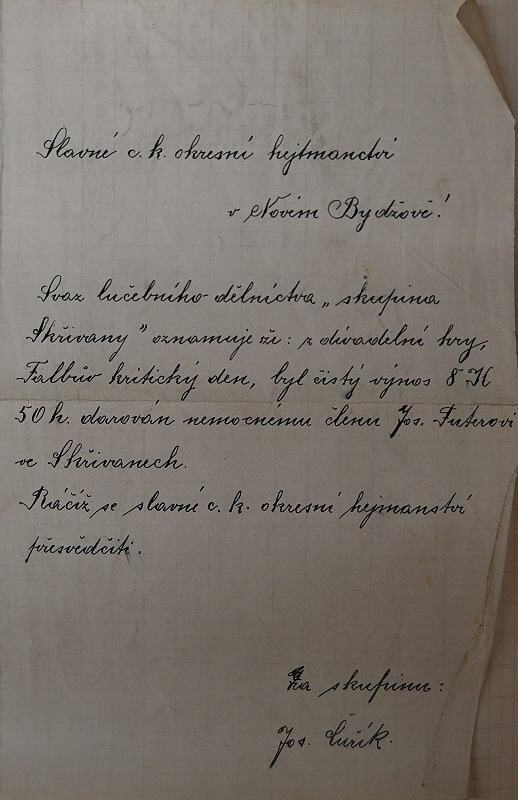 Slavné c. k. okresní hejtmanctví
v Novém Bydžově!
Svaz lučebního dělnictva „skupina
Skřivany" oznamuje že: z divadelní hry,
Falbův kritický den, byl čistý výnos 8 K
50 h. darován nemocnému členu Jos. Futerovi
ve Skřivanech.
Ráčíž se slavné c. k. okresní hejmanství
přesvědčiti.
Za skupinu:
Jos.